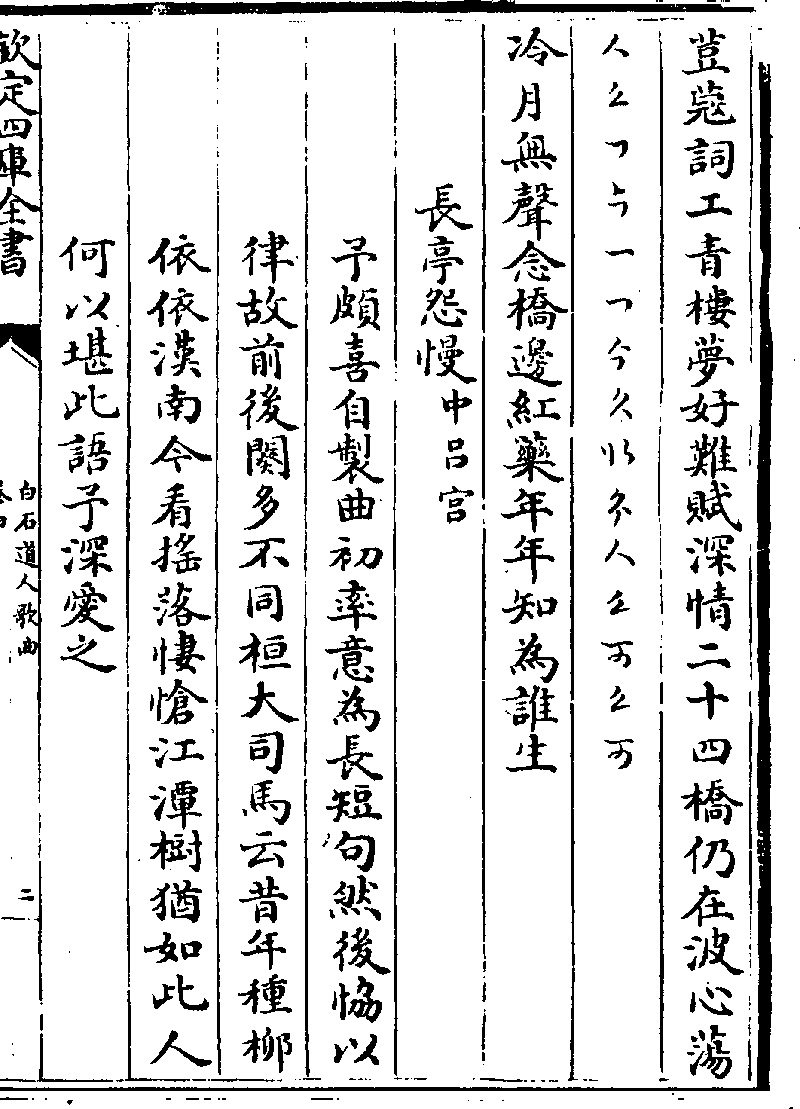 荳蔲詞工青樓夢好難賦深情二十四橋仍在波心蕩
冷月無聲念橋邊紅藥年年知為誰生
長亭怨慢中吕宫
予頗喜自製曲初率意為長短句然後恊以
律故前後闋多不同桓大司馬云昔年種柳
依依漢南今看摇落悽愴江潭樹猶如此人
何以堪此語予深愛之
欽定四庫全書
白石道人歌曲
二